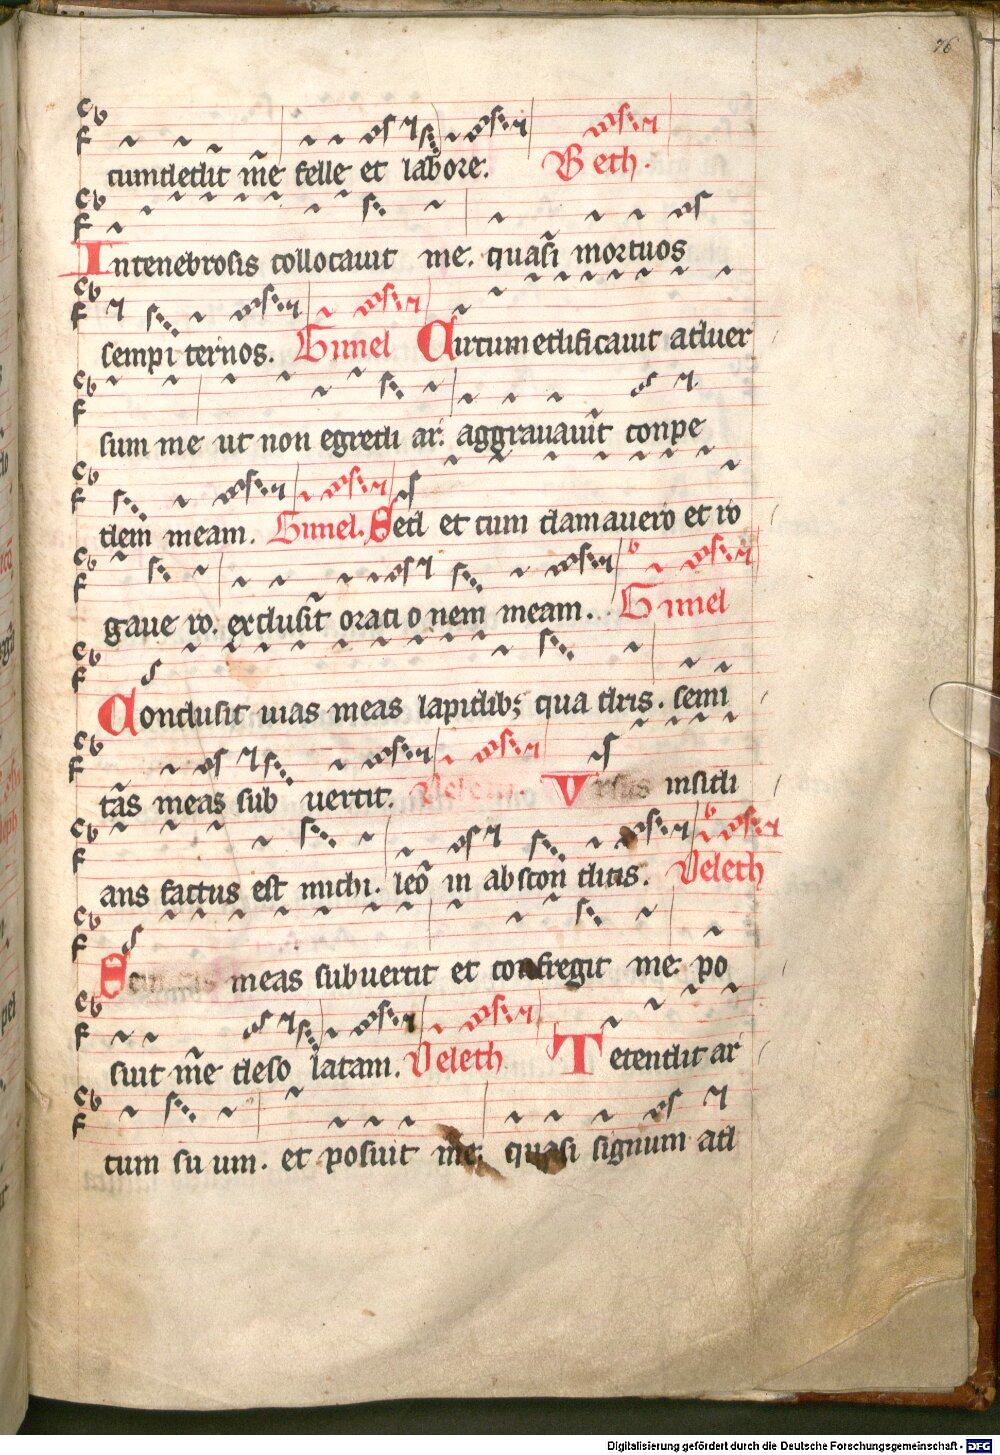 76
cumdedit me felle et labore. Beth.
Intenebrosis collocauit me. quasi mortuos
sempi ternos. Gimel Circumedificauit aduer
sum me ut non egredi ar. aggrauauit conpe
dem meam. Gimel. Sed et cum clamauero et ro
gaue ro. exclusit oraci o nem meam. Gimel
Conclusit uias meas lapidib; qua dris. semi
tas meas sub uertit. Deleth. Vrsus insidi
ans factus est michi. leo in abscon ditis. Deleth
meas subuertit et confregit me po
suit me deso latam. Deleth Tetendit ar
cum su um. et posuit me. quasi signum ad
Digitalisierung gefördert durch die Deutsche Forschungsgemeinschaft - DFG